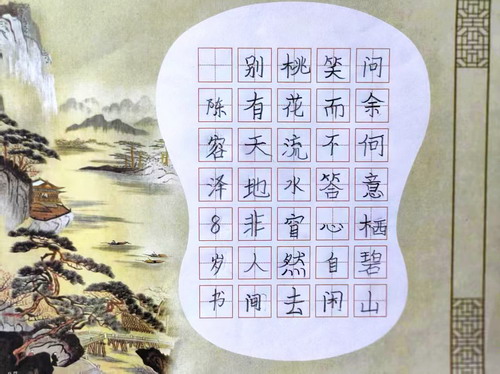 问余何意栖碧山
笑而不答心自闲
桃花流水窅然去
别有天地非人间
陈容泽8岁书